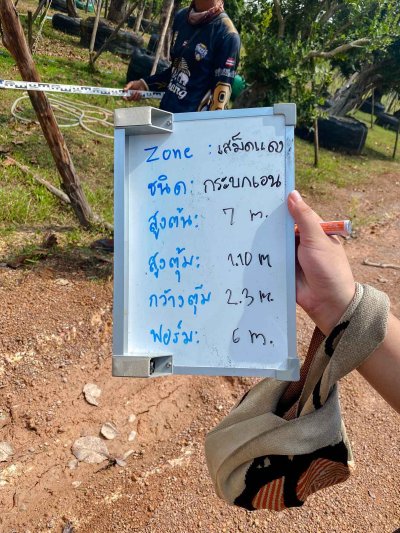 Zone : เสม็ดแดง
ชนิด: กระบกเอน
สูงต้น: 7 m.
สูงตุ้ม: 1.10 m
กว้างตุ้ม 2.3 m.
ฟอร์ม: 6 m.